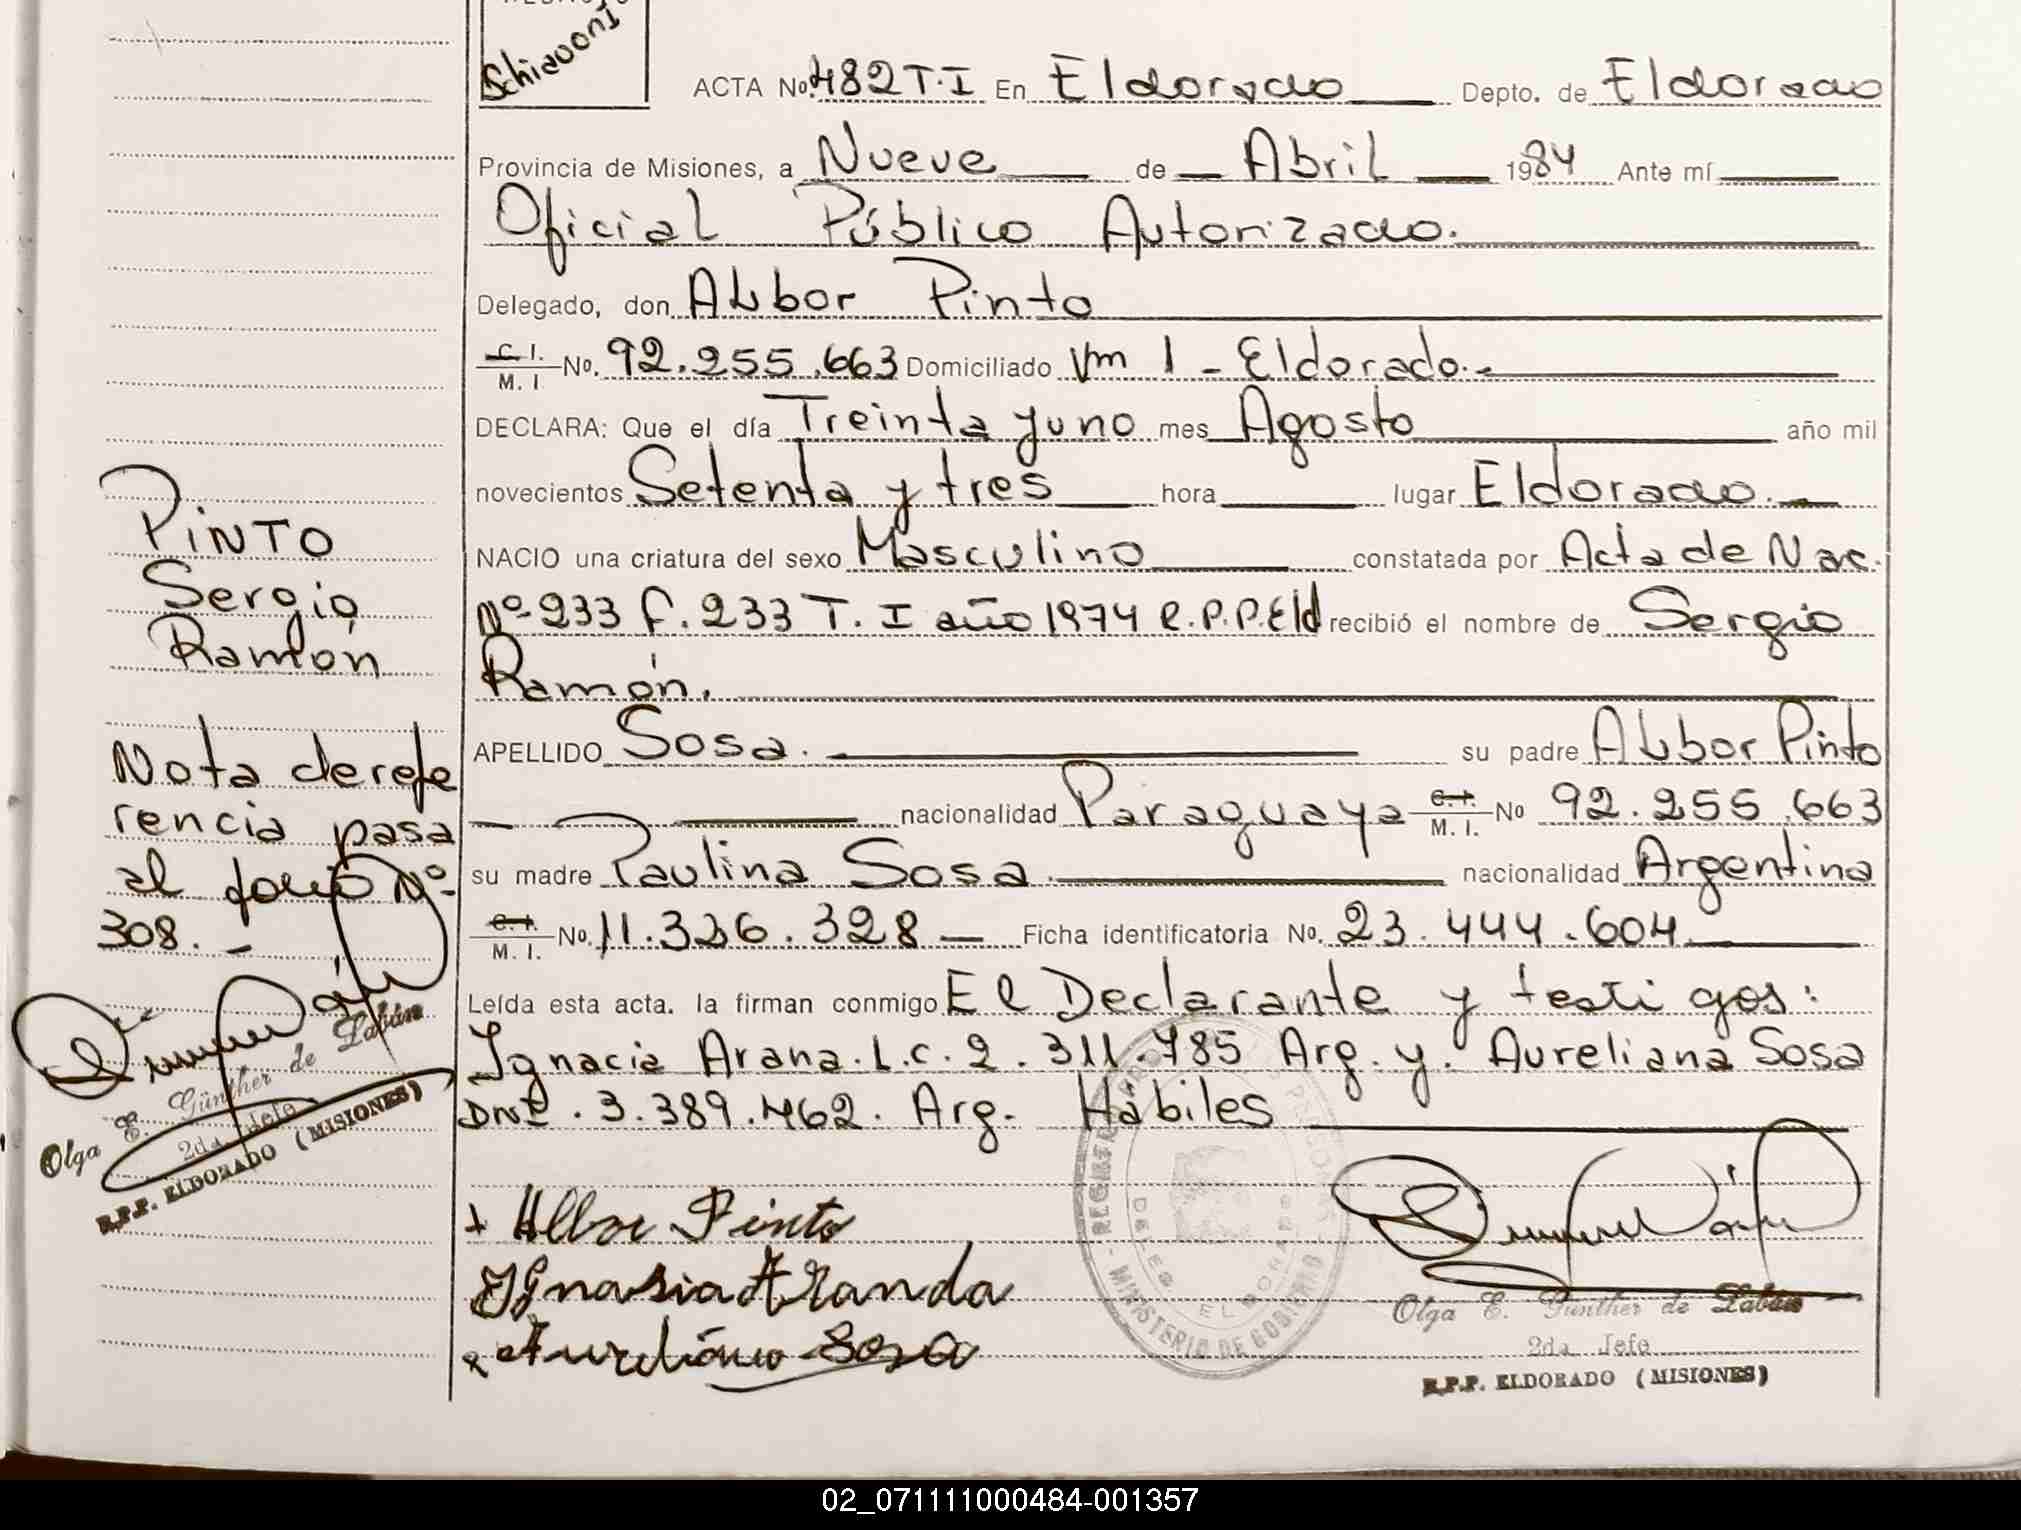 Schiavoni
ACTA No. 482 T.I En Eldorado Depto. de Eldorado
Provincia de Misiones, a Nueve de Abril 1984 Ante mí
Oficial Público Autorizado.
Delegado, don Albor Pinto
C. I. M. I No. 92.255.663 Domiciliado Km 1 - Eldorado.-
DECLARA: Que el día Treinta y uno mes Agosto año mil
novecientos Setenta y tres hora lugar Eldorado.
NACIO una criatura del sexo Masculino constatada por Acta de Nac.
Nº 233 f. 233 T. I año 1974 R.P.P. Eld recibió el nombre de Sergio
Ramón.
APELLIDO Sosa. su padre Albor Pinto
nacionalidad Paraguaya C. I. M. I. No 92.255.663
su madre Paulina Sosa. nacionalidad Argentina
C. I. M. I. No. 11.326.328 Ficha identificatoria No. 23.444.604
Leída esta acta. la firman conmigo El Declarante y testigos:
Ignacia Arana. L.C. 2.311.785 Arg. y. Aureliana Sosa
DNI. 3.389.462. Arg. Hábiles
+ Albor Pinto
Ignasia Aranda
x Aureliano Sosa
REGISTRO PROVINCIAL DE LAS PERSONAS
MINISTERIO DE GOBIERNO
DELEG. ELDORADO
Olga E. Günther de Labán
2da. Jefe
R.P.P. ELDORADO (MISIONES)
PINTO
Sergio
Ramón
Nota de refe
rencia pasa
al folio Nº
308. -
Olga E. Günther de Labán
2da. Jefe
R.P.P. ELDORADO (MISIONES)
02_071111000484-001357